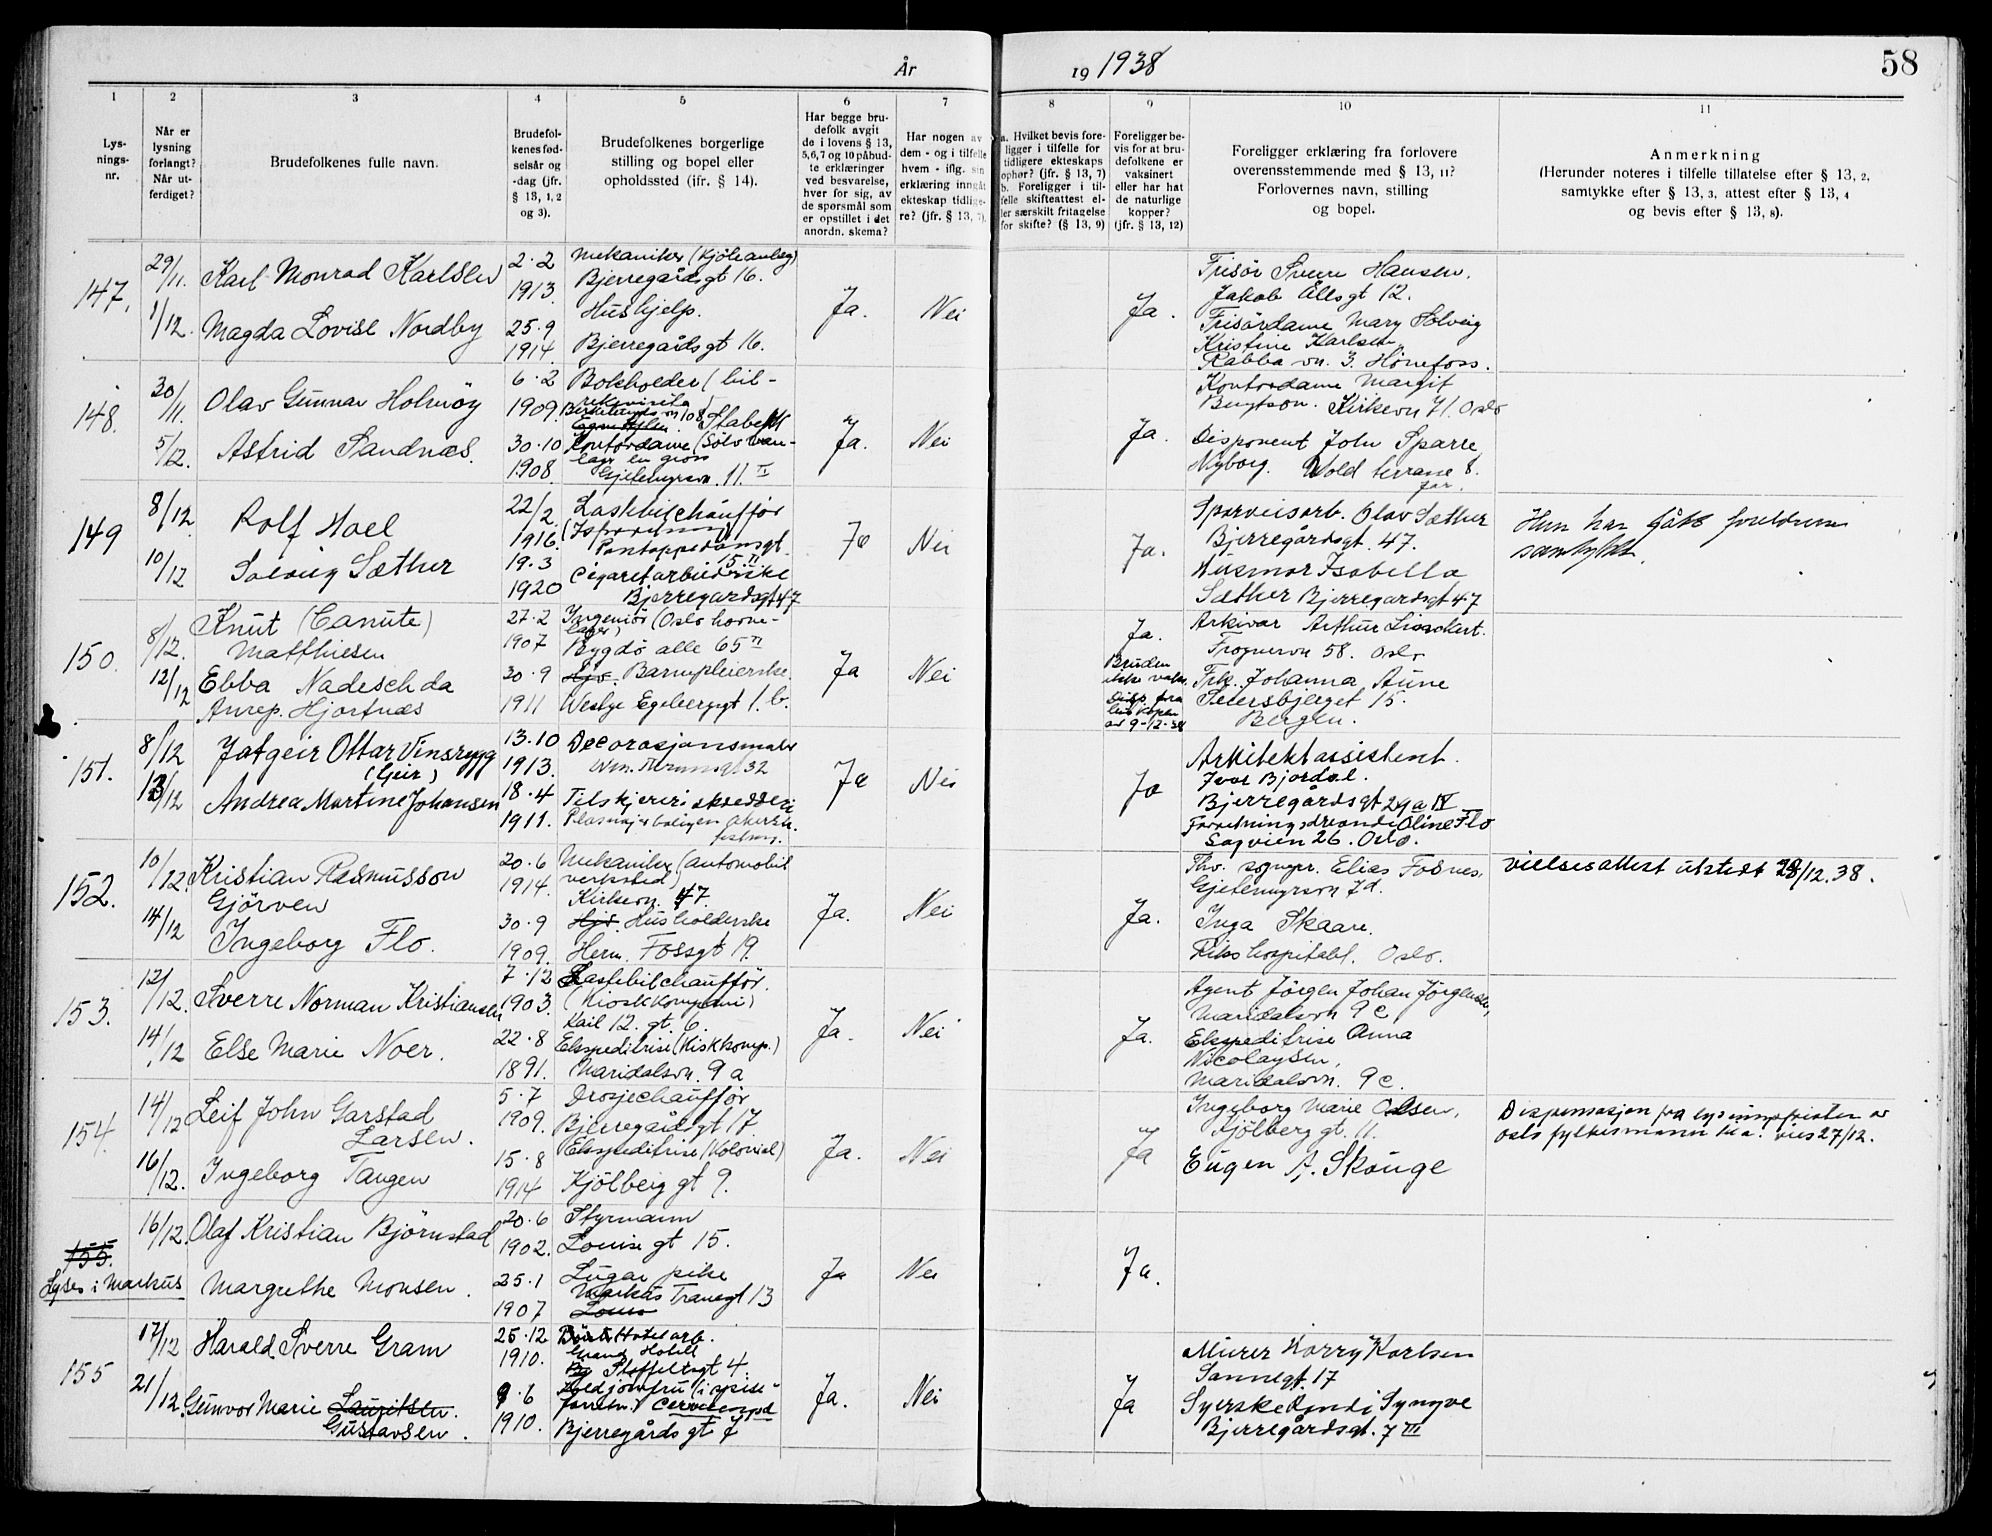 År 19 1938
58
1 2 3 4 5 6 7 8 9 10 11
Lysnings-nr.
Når er lysning forlangt? Når utferdiget?
Brudefolkenes fulle navn.
Brudefolkenes fødselsår og -dag (jfr. § 13, 1, 2 og 3).
Brudefolkenes borgerlige stilling og bopel eller opholdssted (ifr. § 14).
Har begge brudefolk avgit de i lovens § 13, 5,6,7 og 10 påbudte erklæringer ved besvarelse, hver for sig, av de spørsmål som er opstillet i det anordn. skema?
Har nogen av dem - og i tilfelle hvem - iflg. sin erklæring inngåt ekteskap tidligere? (jfr. § 13, 7).
a. Hvilket bevis foreligger i tilfelle for tidligere ekteskaps ophør? (jfr. § 13, 7)
b. Foreligger i tilfelle skifteattest eller særskilt fritagelse for skifte? (§ 13, 9)
Foreligger bevis for at brudefolkene er vaksinert eller har hat de naturlige kopper? (jfr. § 13, 12)
Foreligger erklæring fra forlovere overensstemmende med § 13, 11? Forlovernes navn, stilling og bopel.
Anmerkning
(Herunder noteres i tilfelle tillatelse efter § 13, 2, samtykke efter § 13, 3, attest efter § 13, 4 og bevis efter § 13, 8).
147.
29/11.
1/12.
Karl Monrad Karlsen
Magda Lovise Nordby
2.2
1913.
25.9
1914.
Mekaniker (Kjøleanlæg)
Bjerregårdsgt 16.
Hushjelp.
Bjerregårdsgt 16.
Ja.
Nei
Ja.
Frisør Sverre Hansen.
Jakob Ålls gt 12.
Frisørdame Mary Solveig
Kristine Karlsen
Rabba vn. 3. Hønefoss.
148.
30/11.
5/12.
Olav Gunnar Holmøy
Astrid Sandnæs.
6.2
1909.
30.10
1908.
Bokholder (bil-
rekvisita)
108 Stabekk
Kontordame (Sølvvare-
lager en gros
Gjetemyrsvn. 11 II
Ja.
Nei
Ja.
Kontordame Margit
Bengtson. Kirkevn 71. Oslo
Disponent John Sparre
Nyborg. Wold terrasse 8.
149
8/12.
10/12
Rolf Hoel
Solveig Sæther
22/2.
1916.
19.3
1920
Lastebilchauffør
Pontoppedansgt.
15.II
Cigaretarbeiderske
Bjerregardsgt 47
Ja
Nei
Ja.
Sporveisarb. Olav Sæther
Bjerregårdsgt. 47.
Husmor Isabella
Sæther Bjerregardsgt 47
Hun har fått foreldrenes
samtykke.
150.
8/12.
12/12
Knut (Canute)
Matthiesen
Ebba Nadeschda
Anrep. Hjortnæs
27.2
1907
30.9
1911
Ingeniør (Oslo havne-
lager)
Bygdø alle 65 II
Hjv. Barnepleierske.
Westye Egebergsgt 1. b.
Ja
Nei
Ja.
Bruden
ikke vaks.
Disp. fra
av 9-12-38
Arkivar Arthur
Frognervn 58. Oslo
Frk. Johanna Aune
Petersbjerget 15.
Bergen.
151.
8/12
13/12
Jotgeir Ottar Vinsrygg
(Geir)
Andrea Martine Johansen
13.10
1913.
18.4
1911.
Decorasjonsmaler
Wm. Thranesgt 32
Tilskjerer i skredderi
Plassmajorboligen Akersh.
festning.
Ja
Nei
Ja
Arkitektassistent.
Ivar Bjordal.
Bjerregårdsgt 29a IV
Forretningsdrivende Oline Flo
Sagveien 26. Oslo.
152.
10/12.
14/12
Kristian Rasmussøn
Gjörven
Ingeborg Flo.
20.6
1914.
30.9
1909.
Mekaniker (automobil
verksted)
Kirkevn. 47.
Hjv. Husholderske
Herm. Fossgt 19.
Ja.
Nei
Ja.
Thv. sognepr. Elias Fosnes,
Gjetemyrsvn 7d.
Inga Skaare.
Rikshospitalet. Oslo.
Vielsesattest utstedt 28/12.38.
153.
12/12.
14/12
Sverre Norman Kristiansen
Else Marie Noer.
7.12
1903.
22.8
1891.
Lastebilchauffør.
(Kioskkompani)
Keil 12. gt. 6.
Ekspeditrise (Kioskkomp.)
Maridalsvn. 9 a
Ja.
Nei
Ja.
Agent Jörgen Johan Jörgensen,
Maridalsvn 9c
Ekspeditrise Anna
Nicolaysen,
Maridalsvn. 9c.
154.
14/12
16/12.
Leif John Garstad
Larsen.
Ingeborg Tangen
5.7
1909.
15.8
1914
Drosjechauffør
Bjerregårdsgt 17
Ekspeditrise (Kolonial)
Kjölberg gt 9.
Ja.
Nei
Ja
Ingeborg Marie Olsen,
Kjölberg gt. 11.
Eugen A. Skauge
Dispensasjon fra lysningsfristen av
Oslo fylkesmann bl.a. vies 27/12.
155.
Lyses i Markus
16/12.
Olaf Kristian Björnstad
Margrethe Monsen.
20.6
1902.
25.1
1907
Styrmann
Louise gt 15.
Lugar pike
Markus Tranesgt 13
Louis
Ja
Nei
Ja.
155
17/12
21/12.
Harald Sverre Gram
Gunvor Marie Lauritsen.
Gustavsen.
25.12
1910.
9.6
1910.
Hotelarb.
Grand Hotell
Stoffeltsgt 4.
(i spise-
forretn.)
Bjerregårds gt 7
Ja.
Nei
Ja
Murer Harry Karlsen
Sannegt. 17
Syerske Randi Synøve
Bjerregårdsgt. 7 III